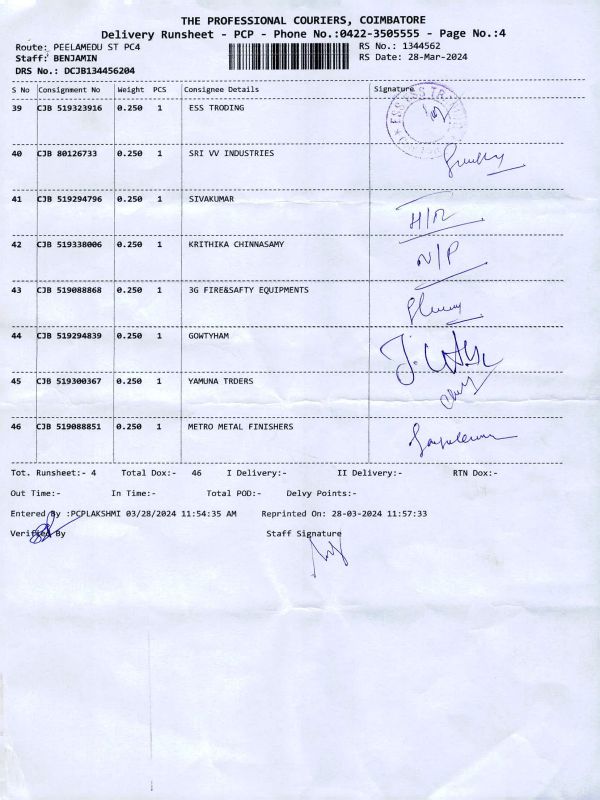 THE PROFESSIONAL COURIERS, COIMBATORE
Delivery Runsheet - PCP - Phone No.:0422-3505555 - Page No.:4
Route: PEELAMEDU ST PC4 RS No.: 1344562
Staff: BENJAMIN RS Date: 28-Mar-2024
DRS No.: DCJB134456204
S No Consignment No Weight PCS Consignee Details Signature
39 CJB 519323916 0.250 1 ESS TRODING
40 CJB 80126733 0.250 1 SRI VV INDUSTRIES
41 CJB 519294796 0.250 1 SIVAKUMAR H/R
42 CJB 519338006 0.250 1 KRITHIKA CHINNASAMY N/P
43 CJB 519088868 0.250 1 3G FIRE&SAFTY EQUIPMENTS
44 CJB 519294839 0.250 1 GOWTYHAM
45 CJB 519300367 0.250 1 YAMUNA TRDERS
46 CJB 519088851 0.250 1 METRO METAL FINISHERS
Tot. Runsheet:- 4 Total Dox:- 46 I Delivery:- II Delivery:- RTN Dox:-
Out Time:- In Time:- Total POD:- Delvy Points:-
Entered By :PCPLAKSHMI 03/28/2024 11:54:35 AM Reprinted On: 28-03-2024 11:57:33
Verified By Staff Signature